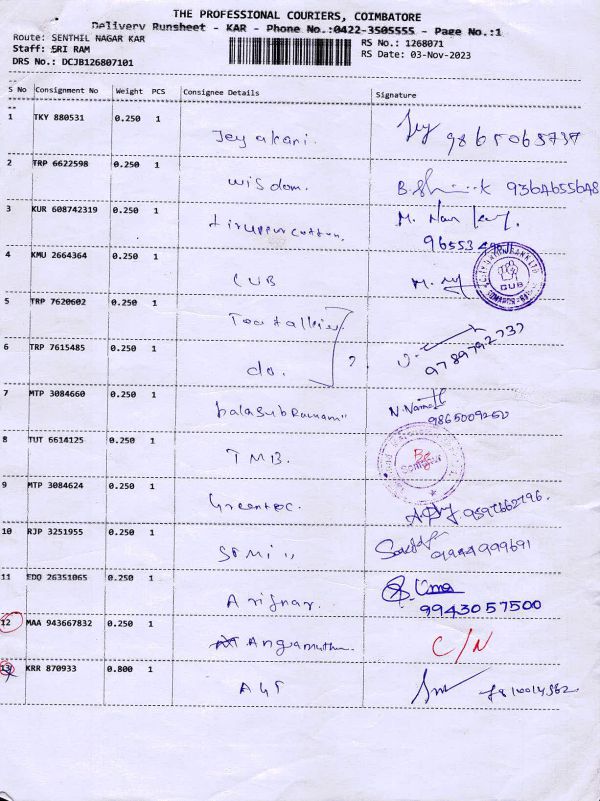 THE PROFESSIONAL COURIERS, COIMBATORE
Delivery Runsheet - KAR - Phone No.:0422-3505555 - Page No.:1
Route: SENTHIL NAGAR KAR
Staff: SRI RAM
DRS No.: DCJB126807101
RS No.: 1268071
RS Date: 03-Nov-2023
S No Consignment No Weight PCS Consignee Details Signature
1 TKY 880531 0.250 1
Jeyakani. 9865065737
2 TRP 6622598 0.250 1
wisdom. 9364655648
3 KUR 608742319 0.250 1
tiruppurcotton. M.
4 KMU 2664364 0.250 1
CUB M.
CITY UNION BANK LTD
CUB
5 TRP 7620602 0.250 1
6 TRP 7615485 0.250 1
do. ? 9789792737
7 MTP 3084660 0.250 1
balasubramani" N.
9865009250
8 TUT 6614125 0.250 1
TMB.
9 MTP 3084624 0.250 1
Greentec. 9597662796.
10 RJP 3251955 0.250 1
11 EDQ 26351065 0.250 1
Arignar. Uma
9943057500
12 MAA 943667832 0.250 1
Angamuthu. C/N
13 KRR 870933 0.800 1